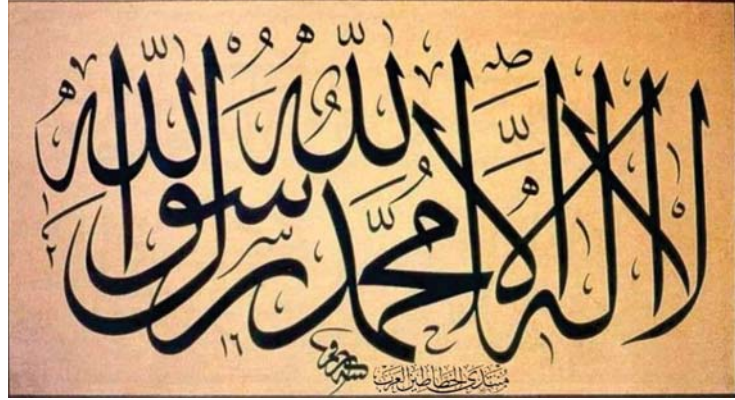 لا إله إلا الله محمد رسول الله
منتدى الخطاطين العرب